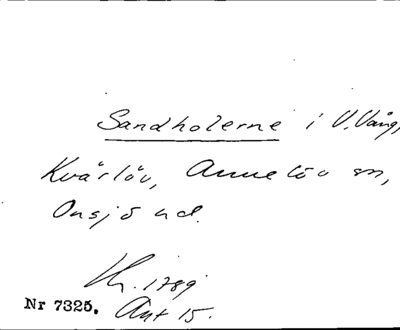 Sandholerne i V. Vång,
Kvärlöv, Annelöv sn,
Onsjö hd.
Kr. 1789
Nr 7325. Akt 15.